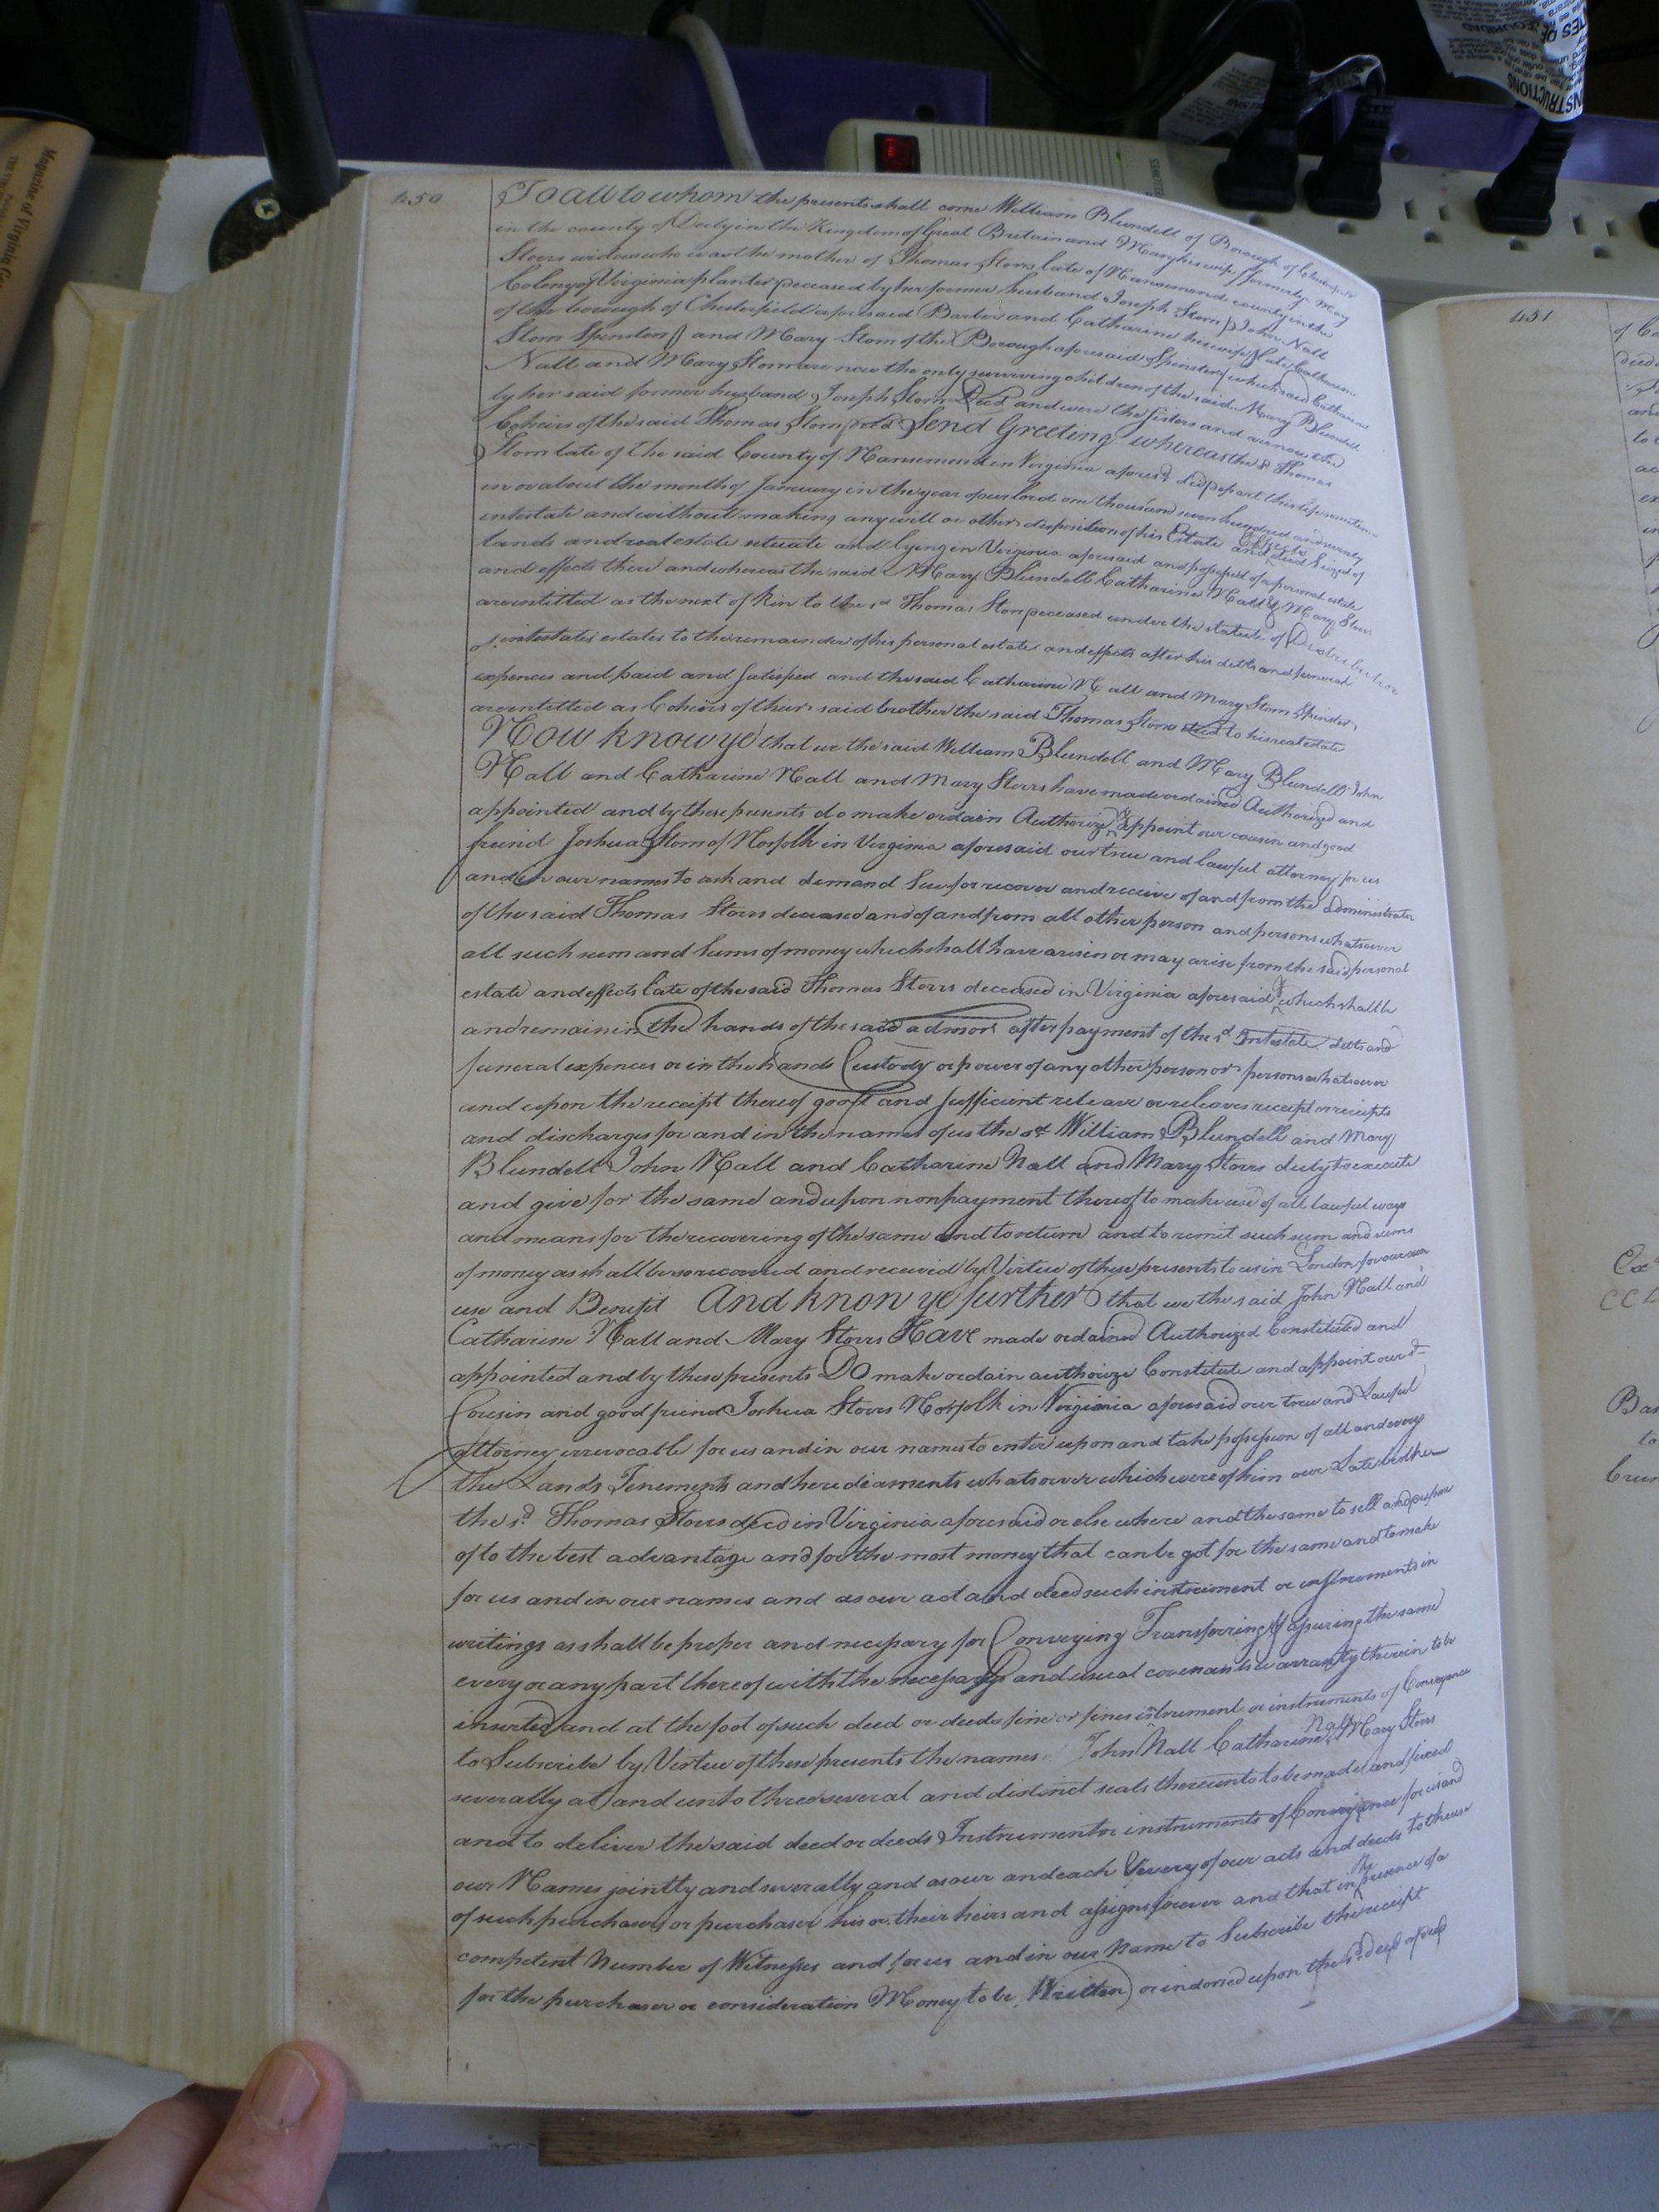 450
To all to whom the presents shall come William Blundell of Borough of Chesterfield
in the county of Darly in the Kingdom of Great Britain and Mary his wife (formerly Mary
Storrs widow who was the mother of Thomas Storrs late of Nansemond county in the
Colony of Virginia planter Deceased by her former husband Joseph Storrs) John Nall
of the borough of Chesterfield aforesaid Barber and Catharine his wife (late Catharine
Storrs Spinster) and Mary Storrs of the Borough aforesaid Spinster (which said Catharine
Nall and Mary Storrs are now the only surviving children of the said Mary Blundell
by her said former husband Joseph Storrs Decd and were the sisters and are now the
Coheirs of the said Thomas Storrs decd) Send Greeting whereas the sd Thomas
Storrs late of the said County of Nansemond in Virginia aforesd did depart this life sometime
in or about the month of January in the year of our lord one thousand seven hundred and seventy
intestate and without making any will or other disposition of his Estate and Effects died Seized of
lands and real estate situate and lying in Virginia aforesaid and possessed of a personal estate
and effects there and whereas the said Mary Blundell Catharine Nall & Mary Storrs
are entitled as the next of Kin to the sd Thomas Storrs deceased under the statute of Distribution
of intestates estates to the remainder of his personal estate and effects after his debts and funeral
expences and paid and satisfied and the said Catharine Nall and Mary Storrs Spinster
are entitled as Coheirs of their said brother the said Thomas Storrs decd to his real estate
Now know ye that we the said William Blundell and Mary Blundell John
Nall and Catharine Nall and Mary Storrs have made ordained Authorized and
appointed and by these presents do make ordain Authorize & appoint our cousin and good
freind Joshua Storrs of Norfolk in Virginia aforesaid our true and lawful attorney for us
and in our names to ask and demand Sue for recover and receive of and from the administrator
of the said Thomas Storrs deceased and of and from all other person and persons whatsoever
all such sum and sums of money which shall have arisen or may arise from the said personal
estate and effects late of the said Thomas Storrs deceased in Virginia aforesaid & which shall be
and remain in the hands of the said admors after payment of the sd Intestate debts and
funeral expences or in the hands Custody or power of any other person or persons whatsoever
and upon the receipt thereof good and sufficient release or releases receipt or receipts
and discharges for and in the names of us the sd William Blundell and Mary
Blundell John Nall and Catharine Nall and Mary Storrs duly to execute
and give for the same and upon nonpayment thereof to make use of all lawful ways
and means for the recovering of the same and to return and to remit such sum and sums
of money as shall be so recovered and received by Virtue of these presents to us in London for our own
use and Benefit And know ye further that we the said John Nall and
Catharine Nall and Mary Storrs Have made ordained Authorized Constituted and
appointed and by these presents Do make ordain authorize Constitute and appoint our sd
Cousin and good freind Joshua Storrs Norfolk in Virginia aforesaid our true and Lawful
attorney irrevocable for us and in our names to enter upon and take possession of all and every
the Lands Tenements and herediaments whatsoever which were of him our Late brother
the sd Thomas Storrs decd in Virginia aforesaid or else where and the same to sell and dispose
of to the best advantage and for the most money that can be got for the same and to make
for us and in our names and as our act and deed such instrument or instruments in
writings as shall be proper and necessary for Conveying Transferring & assuring the same
every or any part thereof with the necessary and usual covenants warranty therein to be
inserted and at the foot of such deed or deeds fine or fines instrument or instruments of Conveyance
to Subscribe by Virtue of these presents the names John Nall Catharine Nall & Mary Storrs
severally at and unto three several and distinct seals thereunto to be made and fixed
and to deliver the said deed or deeds Instrument or instruments of Conveyance for us and
our Names jointly and severally and as our and each & every of our acts and deeds to the use
of such purchasers or purchaser his or their heirs and assigns forever and that in the presence of a
competent Number of Witnesses and for us and in our Name to Subscribe the receipt
for the purchase or consideration Money to be Written or indorsed upon the sd deed or deed
451
Magazine of Virginia
FELLOWES
INSTRUCTIONS